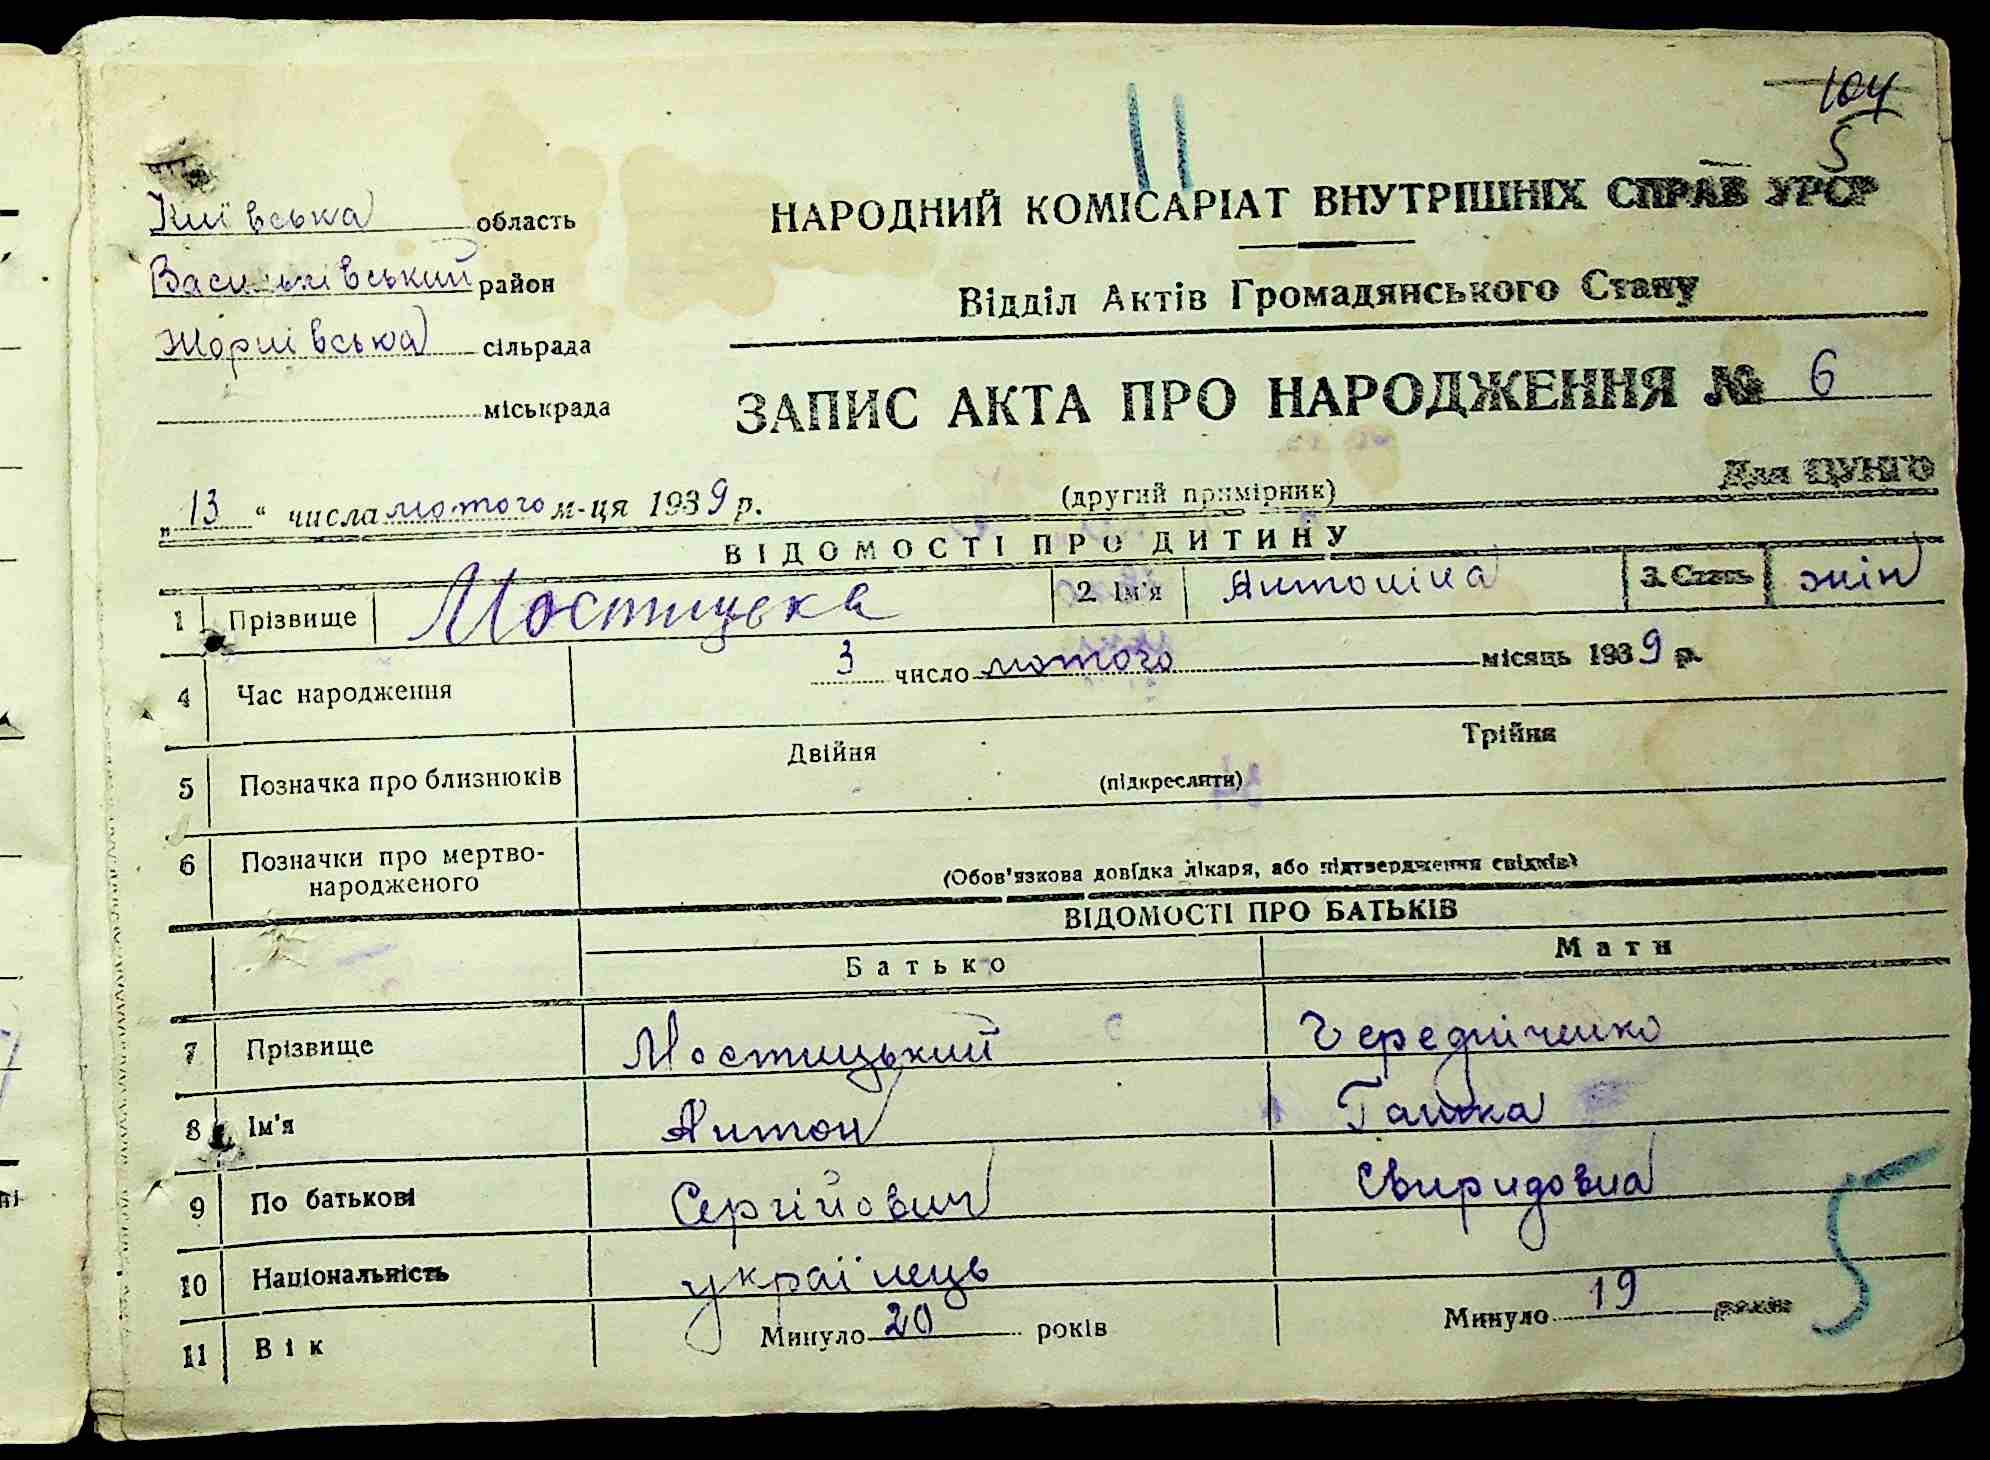 104
5
11
Київська область
Васильківський район
Жорнівська сільрада
міськрада
НАРОДНИЙ КОМІСАРІАТ ВНУТРІШНІХ СПРАВ УРСР
Відділ Актів Громадянського Стану
ЗАПИС АКТА ПРО НАРОДЖЕННЯ № 6
„13“ числа лютого м-ця 1939 р. (другий примірник) Для ЦУНГО
ВІДОМОСТІ ПРО ДИТИНУ
1 Прізвище Мостицька 2. Ім'я Антоніна 3. Стать жін
4 Час народження 3 число лютого місяць 1939 р.
5 Позначка про близнюків Двійня Трійня
(підкреслити)
6 Позначки про мертво-
народженого (Обов'язкова довідка лікаря, або підтвердження свідків)
ВІДОМОСТІ ПРО БАТЬКІВ
Батько Мати
7 Прізвище Мостицький Чередніченко
8 Ім'я Антон Ганна
9 По батькові Сергійович Свиридовна
10 Національність українець
11 Вік Минуло 20 років Минуло 19 років
5